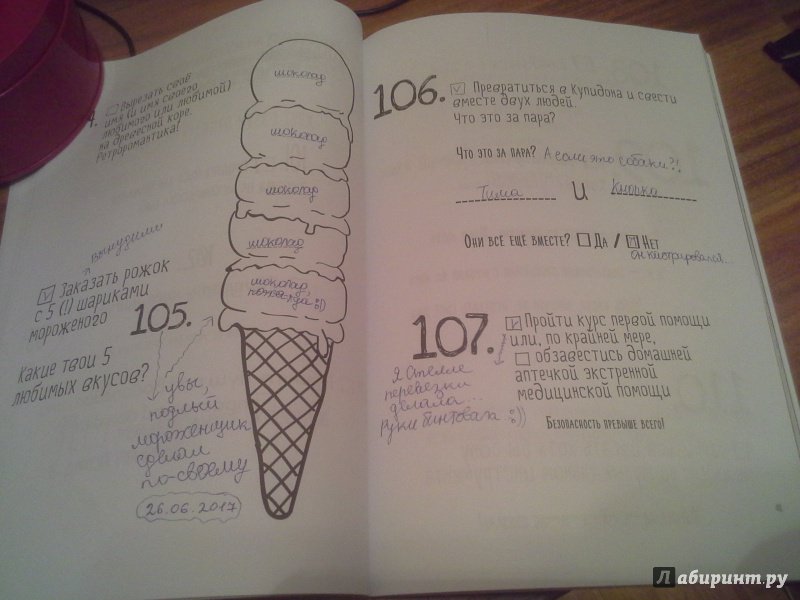 4. Вырезать своё
имя (и имя своего
любимого или любимой)
на древесной коре.
Ретроромантика!
шоколад
шоколад
шоколад
шоколад
шоколад,
пожалуйста :))
вынудили
105.
Заказать рожок
с 5 (!) шариками
мороженого
Какие твои 5
любимых вкусов?
увы,
подлый
мороженщик
сделал
по-своему
26.06.2017
106.
Превратиться в Купидона и свести
вместе двух людей.
Что это за пара?
Что это за пара? А если это собаки?!
Тима и Кнопка
Они всё ещё вместе? Да / Нет
он кастрировался...
107.
Пройти курс первой помощи
или, по крайней мере,
обзавестись домашней
аптечкой экстренной
медицинской помощи
Я Стелле
перевязки
делала...
Руки бинтовала :))
Безопасность превыше всего!
Лабиринт.ру